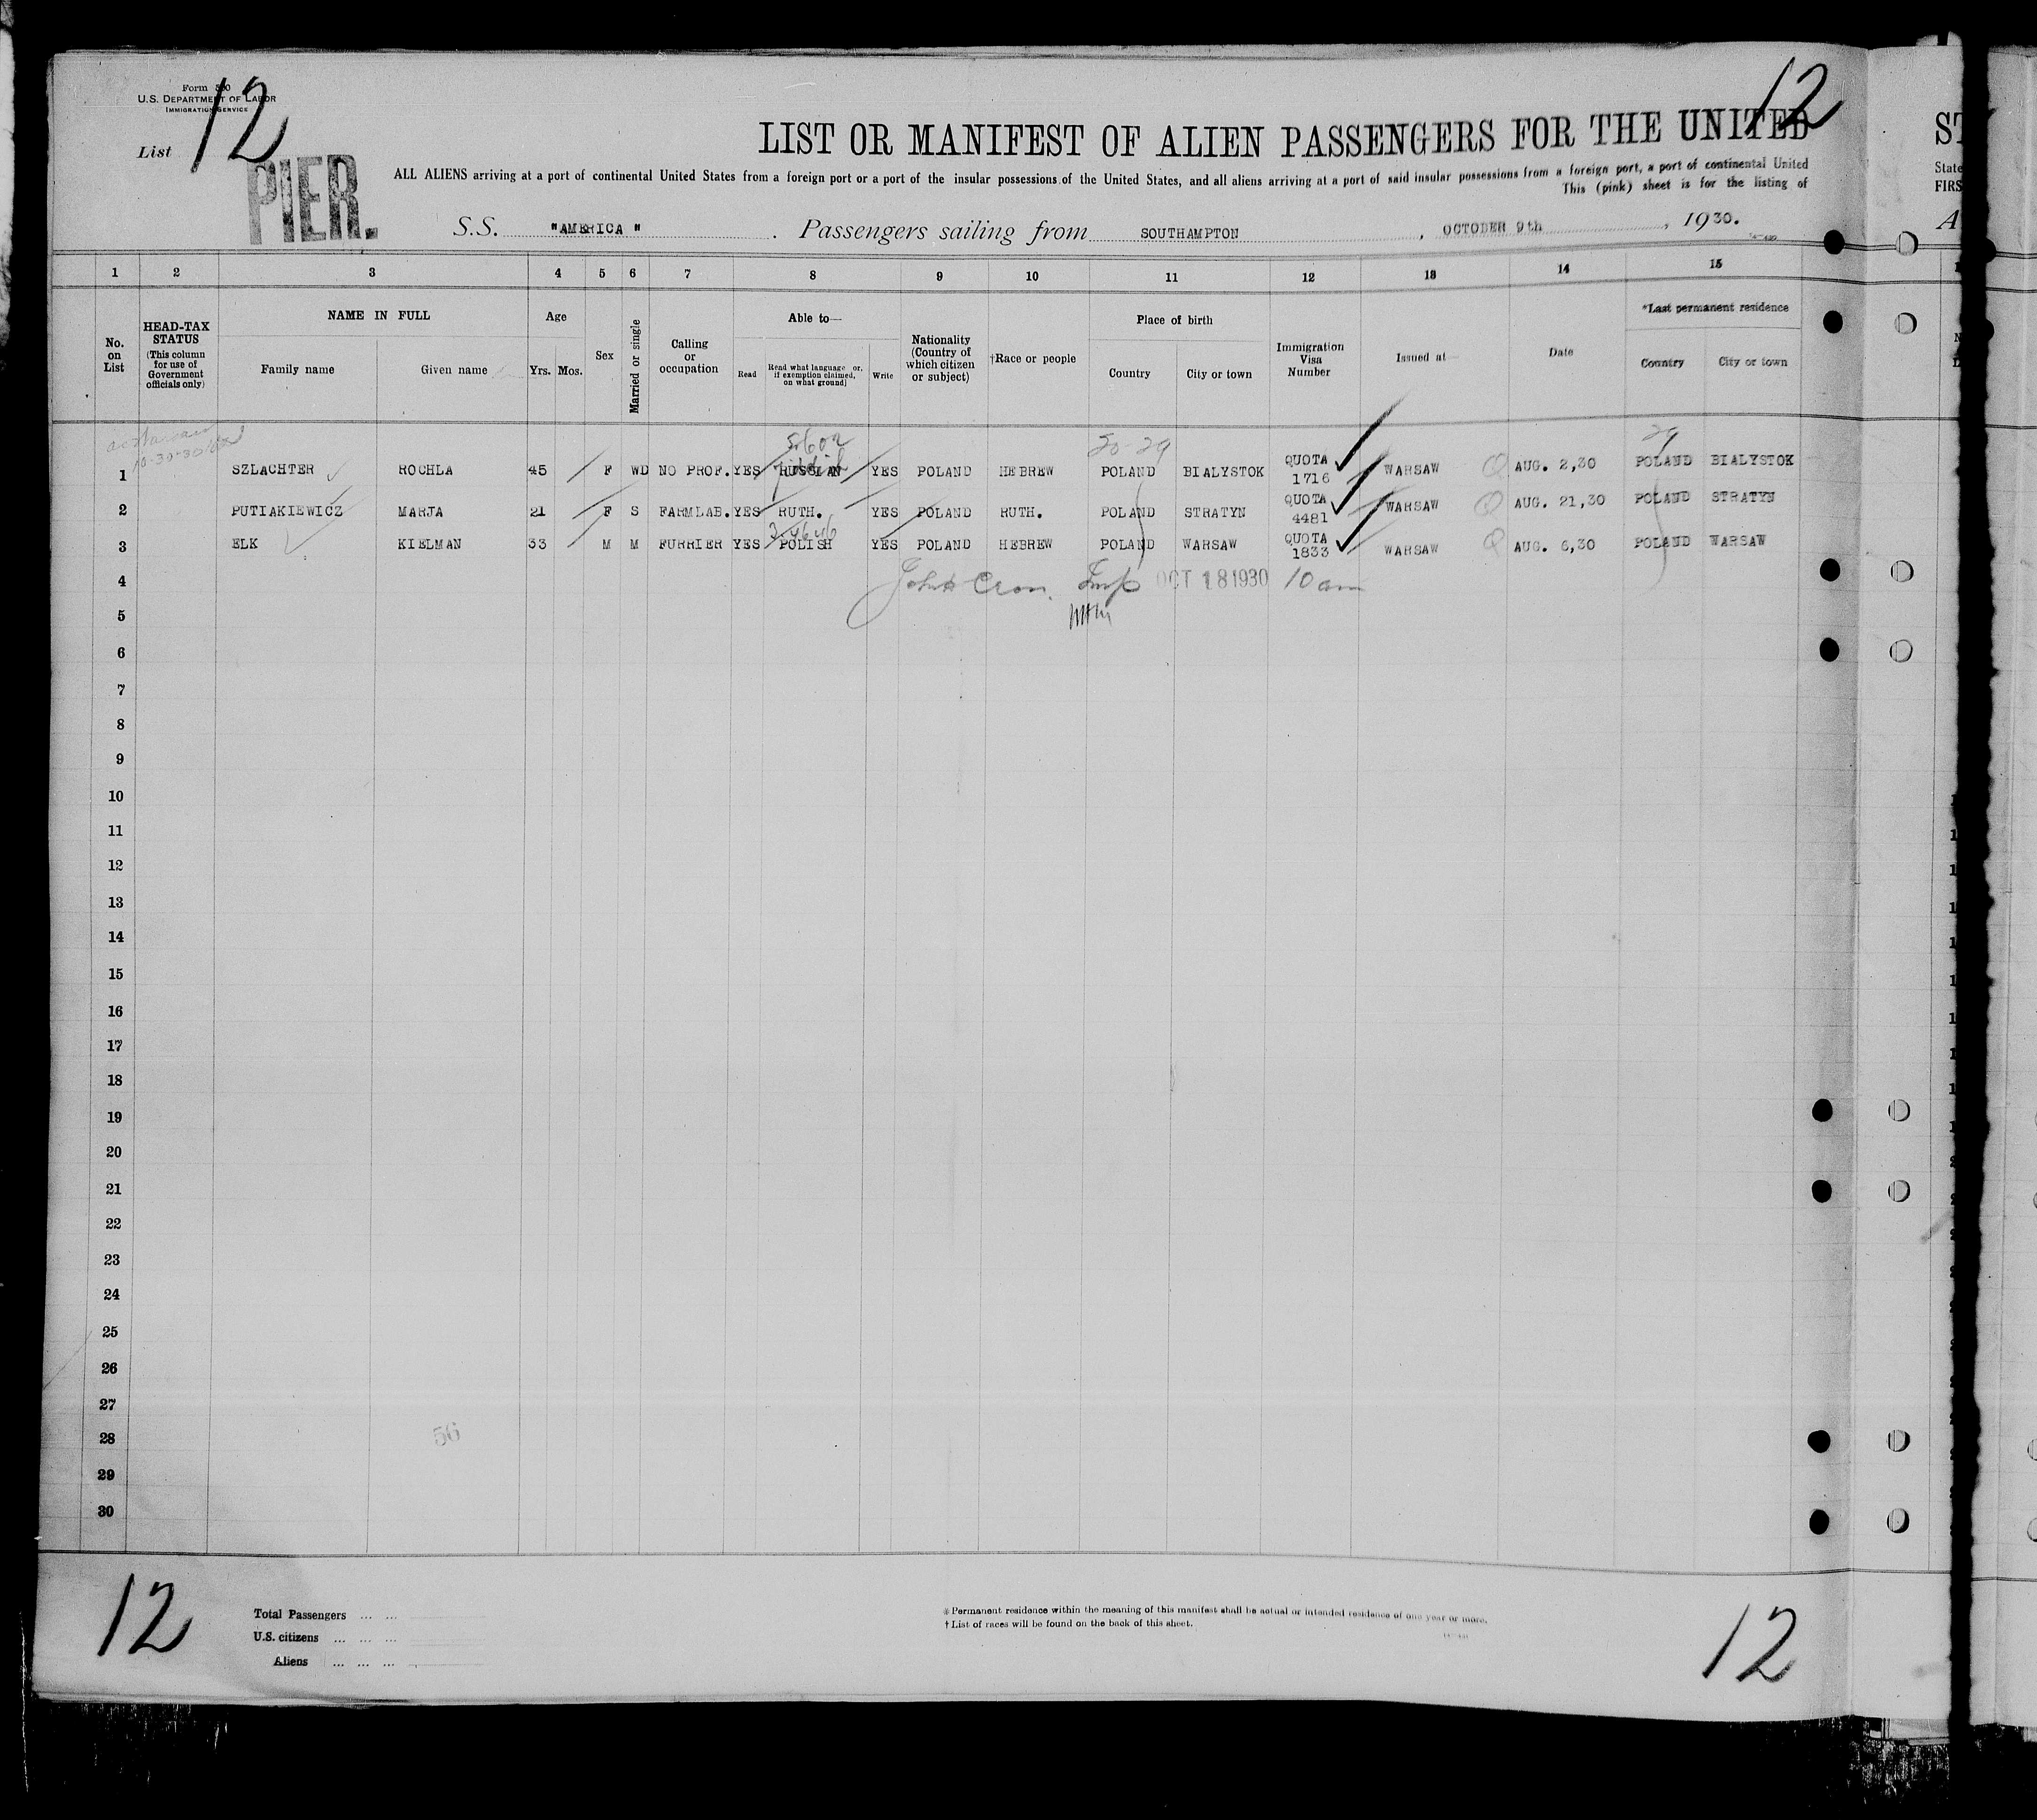 Form 500
U.S. DEPARTMENT OF LABOR
IMMIGRATION SERVICE
List 12
12
PIER.
LIST OR MANIFEST OF ALIEN PASSENGERS FOR THE UNITED
ST
ALL ALIENS arriving at a port of continental United States from a foreign port or a port of the insular possessions of the United States, and all aliens arriving at a port of said insular possessions from a foreign port, a port of continental United
State
This (pink) sheet is for the listing of
FIRS
S.S. "AMERICA" . Passengers sailing from SOUTHAMPTON , OCTOBER 9th , 1930.
A
1 2 3 4 5 6 7 8 9 10 11 12 13 14 15
No. on List
HEAD-TAX STATUS (This column for use of Government officials only)
NAME IN FULL
Family name Given name
Age
Yrs. Mos.
Sex
Married or single
Calling or occupation
Able to—
Read Read what language or, if exemption claimed, on what ground] Write
Nationality (Country of which citizen or subject)
†Race or people
Place of birth
Country City or town
Immigration Visa Number
Issued at—
Date
*Last permanent residence
Country City or town
10-30-30
20-29 29
1 SZLACHTER ROCHLA 45 F WD NO PROF. YES RUSSIAN YES POLAND HEBREW POLAND BIALYSTOK QUOTA 1716 WARSAW Q AUG. 2,30 POLAND BIALYSTOK
2 PUTIAKIEWICZ MARJA 21 F S FARMLAB. YES RUTH. YES POLAND RUTH. POLAND STRATYN QUOTA 4481 WARSAW Q AUG. 21,30 POLAND STRATYN
3 ELK KIELMAN 33 M M FURRIER YES POLISH YES POLAND HEBREW POLAND WARSAW QUOTA 1833 WARSAW Q AUG. 6,30 POLAND WARSAW
4 Cron. Insp OCT 18 1930 10 am
5
6
7
8
9
10
11
12
13
14
15
16
17
18
19
20
21
22
23
24
25
26
27
28 56
29
30
12
Total Passengers ... ...
U.S. citizens ... ... ...
Aliens ... ... ...
* Permanent residence within the meaning of this manifest shall be actual or intended residence of one year or more.
† List of races will be found on the back of this sheet.
12